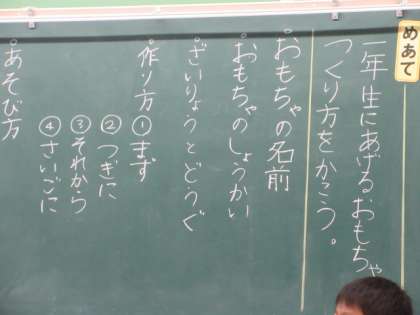 めあて
一年生にあげるおもちゃ
つくり方をかこう。
。おもちゃの名前
。おもちゃのしょうかい
。ざいりょうとどうぐ
。作り方 ①まず
②つぎに
③それから
④さいごに
。あそび方